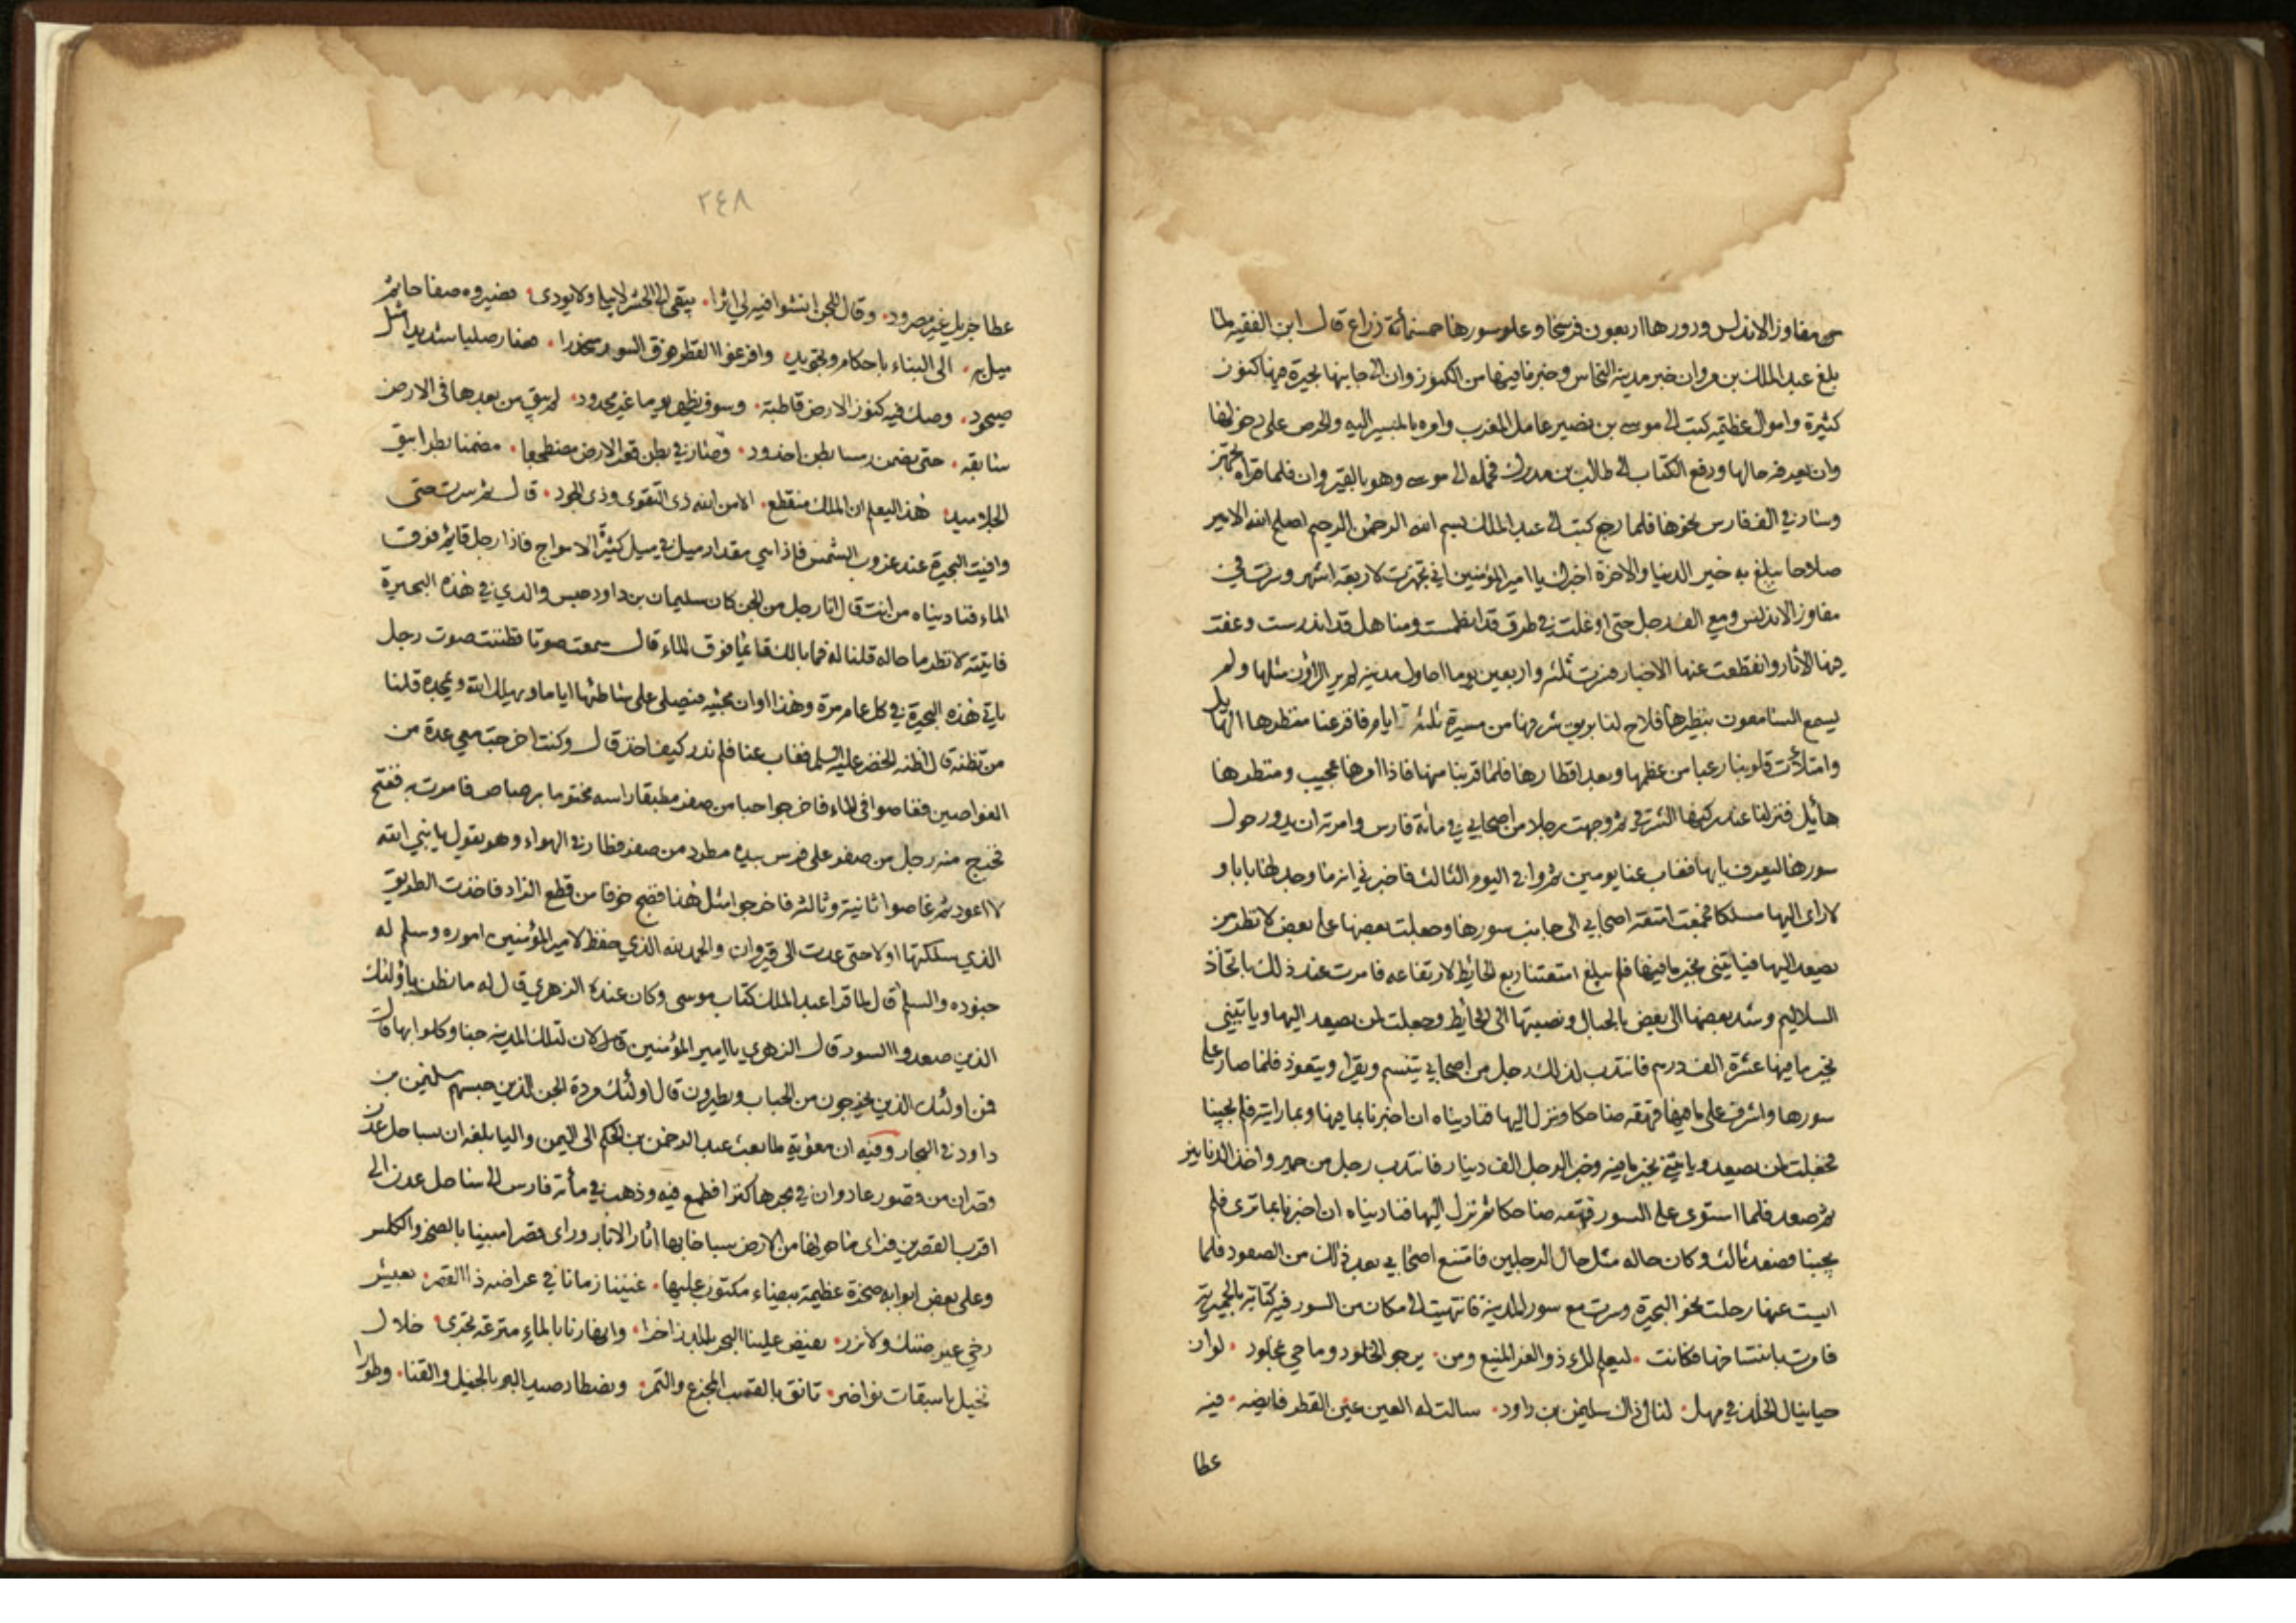 مفاوز الاندلس ودورها اربعون فرسخا وعلو سورها خمسمأة ذراع قال ابن الفقيه لما
بلغ عبد الملك بن مروان خبر مدينة النحاس وخبر ما فيها من الكنوز وان الى جانبها بحيرة فيها كنوز
كثيرة واموال عظيمة كتب الى موسى بن نصير عامل المغرب وامره بالمسير اليه والحرص على دخولها
وان يعرفه حالها ودفع الكتاب الى طالب بن مدرك فحمله الى موسى وهو بالقيروان فلما قراه تجهز
وسار في الف فارس نحوها فلما رجع كتب الى عبد الملك بسم الله الرحمن الرحيم اصلح الله الامير
صلاحا يبلغ به خير الدنيا والاخرة اخبرك يا امير المؤمنين اني تجهزت لاربعة اشهر وسرت في
مفاوز الاندلس ومع الف رجل حتى اوغلت في طرق قد انطمست ومناهل قد اندرست وعفت
فيها الآثار وانقطعت عنها الاخبار فسرت ثلثه واربعين يوما احاول مدينة لم ير الراؤن مثلها ولم
يسمع السامعون بنظيرها فلاح لنا بريق شرفها من مسيرة ثلثة ايام فافزعنا منظرها الهايل
وامتلأت قلوبنا رعبا من عظمها وبعد اقطارها فلما قربنا منها فاذا امرها عجيب ومنظرها
هايل فنزلنا عند ركنها الشرقي ثم وجهت رجلا من اصحابي في مأة فارس وامرته ان يدور حول
سورها ليعرف بابها فغاب عنا يومين ثم وافى اليوم الثالث فاخبرني انه ما وجد لها بابا و
لا راى اليها مسلكا فجمعت امتعة اصحابي الى جانب سورها وجعلت بعضها على بعض لانظر من
يصعد اليها فياتيني بخبر ما فيها فلم يبلغ امتعتنا ربع الحايط لارتفاعه فامرت عند ذلك باتخاذ
السلاليم وشد بعضها الى بعض بالحبال ونصبتها الى الحايط وجعلت لمن يصعد اليها وياتيني
بخبر ما فيها عشرة الف درهم فانتدب لذلك رجل من اصحابي يتسنم ويقرا ويتعوذ فلما صار على
سورها واشرف على ما فيها قهقه ضاحكا ونزل اليها فناديناه ان اخبرنا بما فيها وبما رايته فلم يجبنا
فجعلت لمن يصعد وياتيني بخبر ما فيه وخبر الرجل الف دينار فانتدب رجل من حمير واخذ الدنانير
ثم صعد فلما استوى على السور قهقه ضاحكا ثم نزل اليها فناديناه ان اخبرنا بما ترى فلم
يجبنا فصعد ثالث وكان حاله مثل حال الرجلين فامتنع اصحابي بعد ذلك من الصعود فلما
ايست عنها رحلت نحو البحيرة وسرت مع سور المدينة فانتهيت الى مكان من السور فيه كتابة بالحميرية
فامرت بانتساخها فكانت ليعلم المرء ذو العز المنيع ومن يرجو الخلود وما حي بمخلود لو ان
حيا ينال الخلد في مهل لنال ذاك سليمن بن داود سالت له العين عين القطر فايضه فيه
عطا
٢٤٨
عطا جزيل غير مصرود وقال للجن انشوا فيه لي اثرا يبقى الى الحشر لا يبلى ولا يودى فصيروه صفاحا ثم
ميل به الى البناء باحكام وتجويد وافرغوا القطر فوق السور منحدرا فصار صلبا شديدا مثل
صيخود وصك فيه كنوز الارض قاطبة وسوف يظهر يوما غير محدود لم يبق من بعدها في الارض
سابقة حتى يضمن رمسا بطن اخدود وصار في بطن قعر الارض مضطجعا مضمنا بطوابيق
الجلاميد هذا ليعلم ان الملك منقطع الا من الله ذى التقوى وذى الجود قال ثم سرت حتى
وافيت البحيرة عند غروب الشمس فاذا هي مقدار ميل في ميل كثيرة الامواج فاذا رجل قايم فوق
الماء فناديناه من انت قال انا رجل من الجن كان سليمان بن داود حبس والدي في هذه البحيرة
فاتيته لانظر ما حاله قلنا له فما بالك قائما فوق الماء قال سمعت صوتا فظننت صوت رجل
ياتي هذه البحيرة في كل عام مرة وهذا اوان مجيئه فيصلى على شاطئها اياما ويهلل الله ويمجده قلنا
من تظنه قال اظنه الخضر عليه السلم فغاب عنا فلم ندر كيف اخذ قال وكنت اخرجت معي عدة من
الغواصين فغاصوا في الماء فاخرجوا حبا من صفر مطبقا راسه مختوما برصاص فامرت به ففتح
فخرج منه رجل من صفر على فرس بيده مطرد من صفر فطار في الهواء وهو يقول يا نبي الله
لا اعود ثم غاصوا ثانية وثالثه فاخرجوا مثل هذا فضج خوفا من قطع الزاد فاخذت الطريق
الذي سلكتها اولا حتى عدت الى قيروان والحمد لله الذي حفظ لامير المؤمنين اموره وسلم له
جنوده والسلم قال لما قرا عبد الملك كتاب موسى وكان عنده الزهري قال له ما تظن باولئك
الذين صعدوا السور قال الزهري يا امير المؤمنين ان لتلك المدينة جنا وكلوا بها قال
فمن اولئك الذين يخرجون من الحباب ويطيرون قال اولئك مردة الجن الذين حبسهم سليمن بن
داود في البحار وفيه ان معوية لما بعث عبد الرحمن بن الحكم الى اليمن واليا بلغه ان بساحل عدن
قصران من قصور عاد وان في بحرها كنزا فطمع فيه وذهب في مأة فارس الى ساحل عدن الى
اقرب القصرين فراى ما حولها من الارض سباخا بها اثار الابار وراى قصرا مبنيا بالصخر والكلس
وعلى بعض ابوابه صخرة عظيمة بيضاء مكتوب عليها غنينا زمانا في عراصه ذا القصر بعيش
رخي غير ضنك ولا نزر يفيض علينا البحر بالمد زاخرا وانهارنا بالماء مترعة تجرى خلال
نخيل باسقات نواضر تانق بالقسب المجزع والتمر ونصطاد صيد البر بالخيل والقنا وطورا